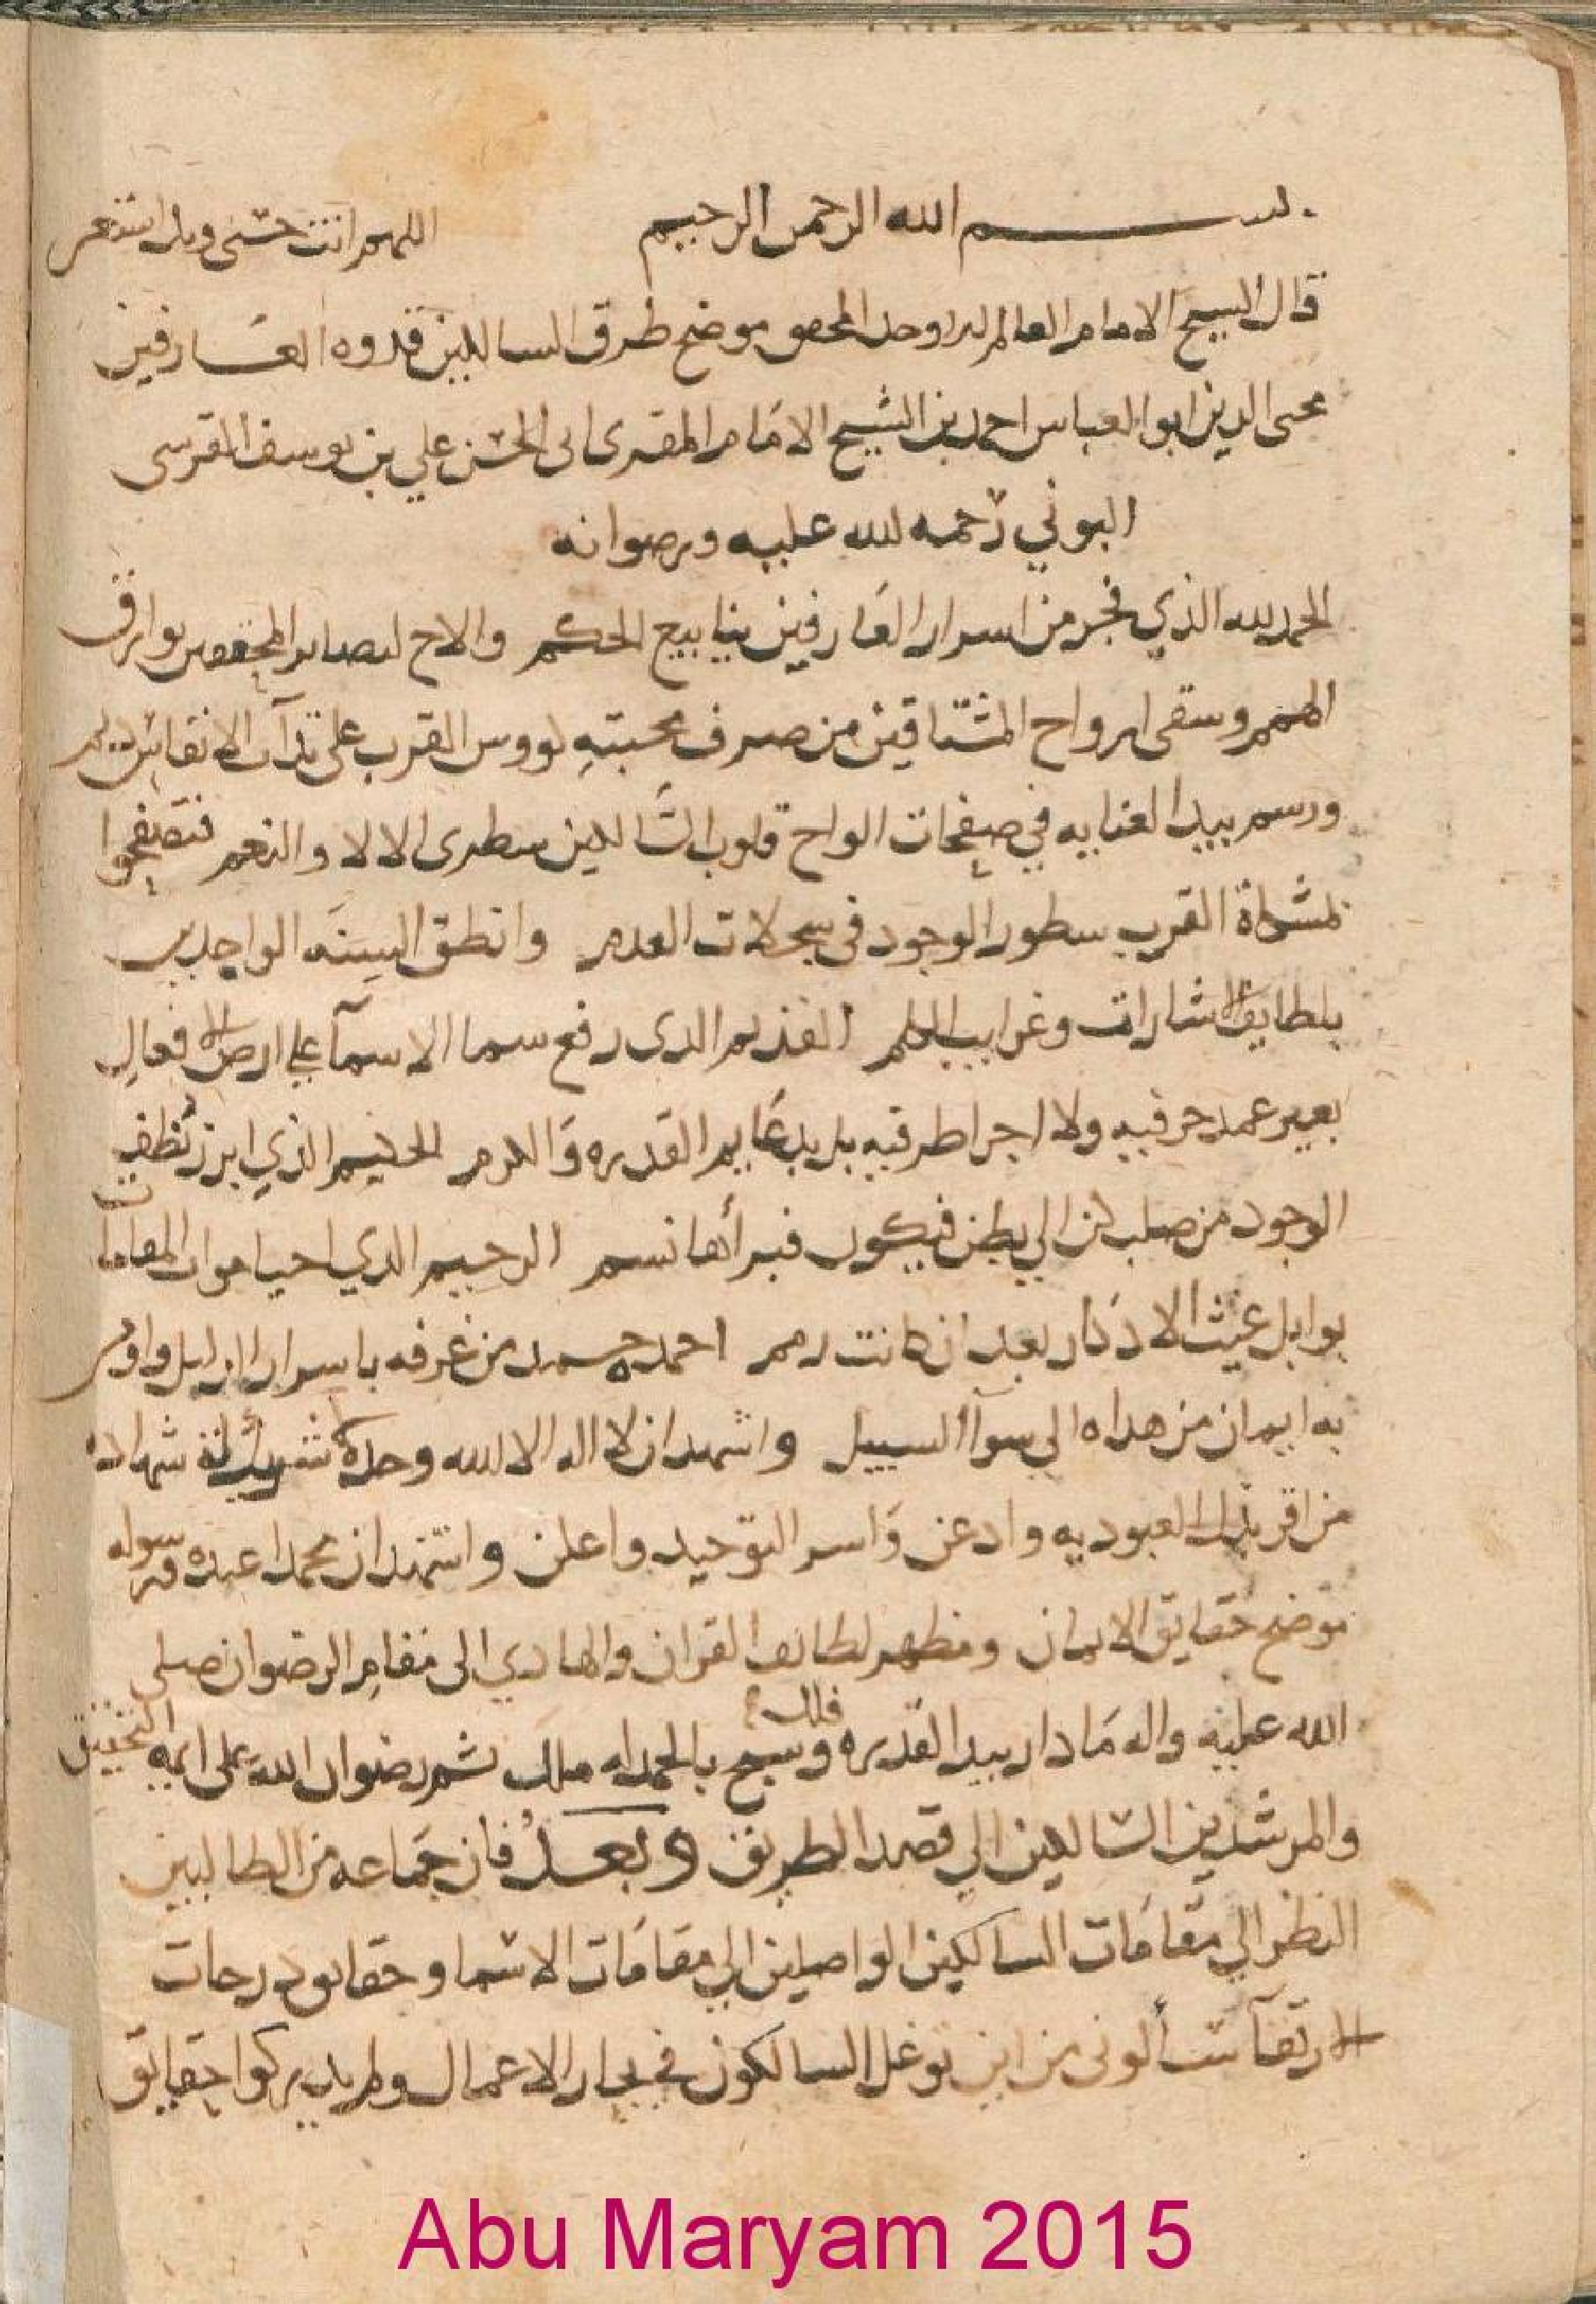 بسم الله الرحمن الرحيم اللهم انت حسبي وبك استنصر
قال الشيخ الامام العالم الاوحد المحقق موضح طرق السالكين قدوه العارفين
محيى الدين ابو العباس احمد بن الشيخ الامام المقرى ابى الحسن علي بن يوسف القرسى
البوني رحمه الله عليه ورضوانه
الحمد لله الذي فجر من اسرار العارفين ينابيع الحكم والاح لبصاير المحققين بوارق
الهمم وسقى ارواح المشتاقين من صرف محبته كووس القرب على الانفاس ديم
ورسم بيد العنايه في صفحات الواح قلوب السالكين سطرى الالا والنعم فتصفحوا
بمشكاة القرب سطور الوجود فى سجلات العدم وانطق السنه الواجدين
بلطايف الاشارات وغرايب الكلم القديم الدى رفع سما الاسمآ على ارض الافعال
بغير عمد حرفيه ولا اجرا طرقيه القدره والكرم الحكيم الذي ابرز نطف
الوجود من صلب كن الي بطن فيكون فبرأها نسم الرحيم الدي احيا موات المقامات
بوابل غيث الاذكار بعد ان كانت رمم احمده حمد من عرفه باسرار الدليل واوضح
به ايمان من هداه الى سوآ السبيل واشهد ان لا اله الا الله وحده لا شريك له شهادة
من اقر بذل العبوديه وادعن واسر التوحيد واعلن واشهد ان محمدا عبده ورسوله
موضح حقايق الايمان ومظهر لطائف القران والهادي الى مقام الرضوان صلى
الله عليه واله ما دار بيد القدره فلك وسبح بالحمد له ملك ثم رضوان الله على ايمه التحقيق
والمرشدين السالكين الي قصد الطريق وبعد فان جماعه من الطالبين
النظر الي مقامات السالكين الواصلين الي مقامات الاسما وحقايق درجات
الارتقآ سألونى من اين توغل السالكون في بحار الاعمال ولم يدركوا حقايق
Abu Maryam 2015